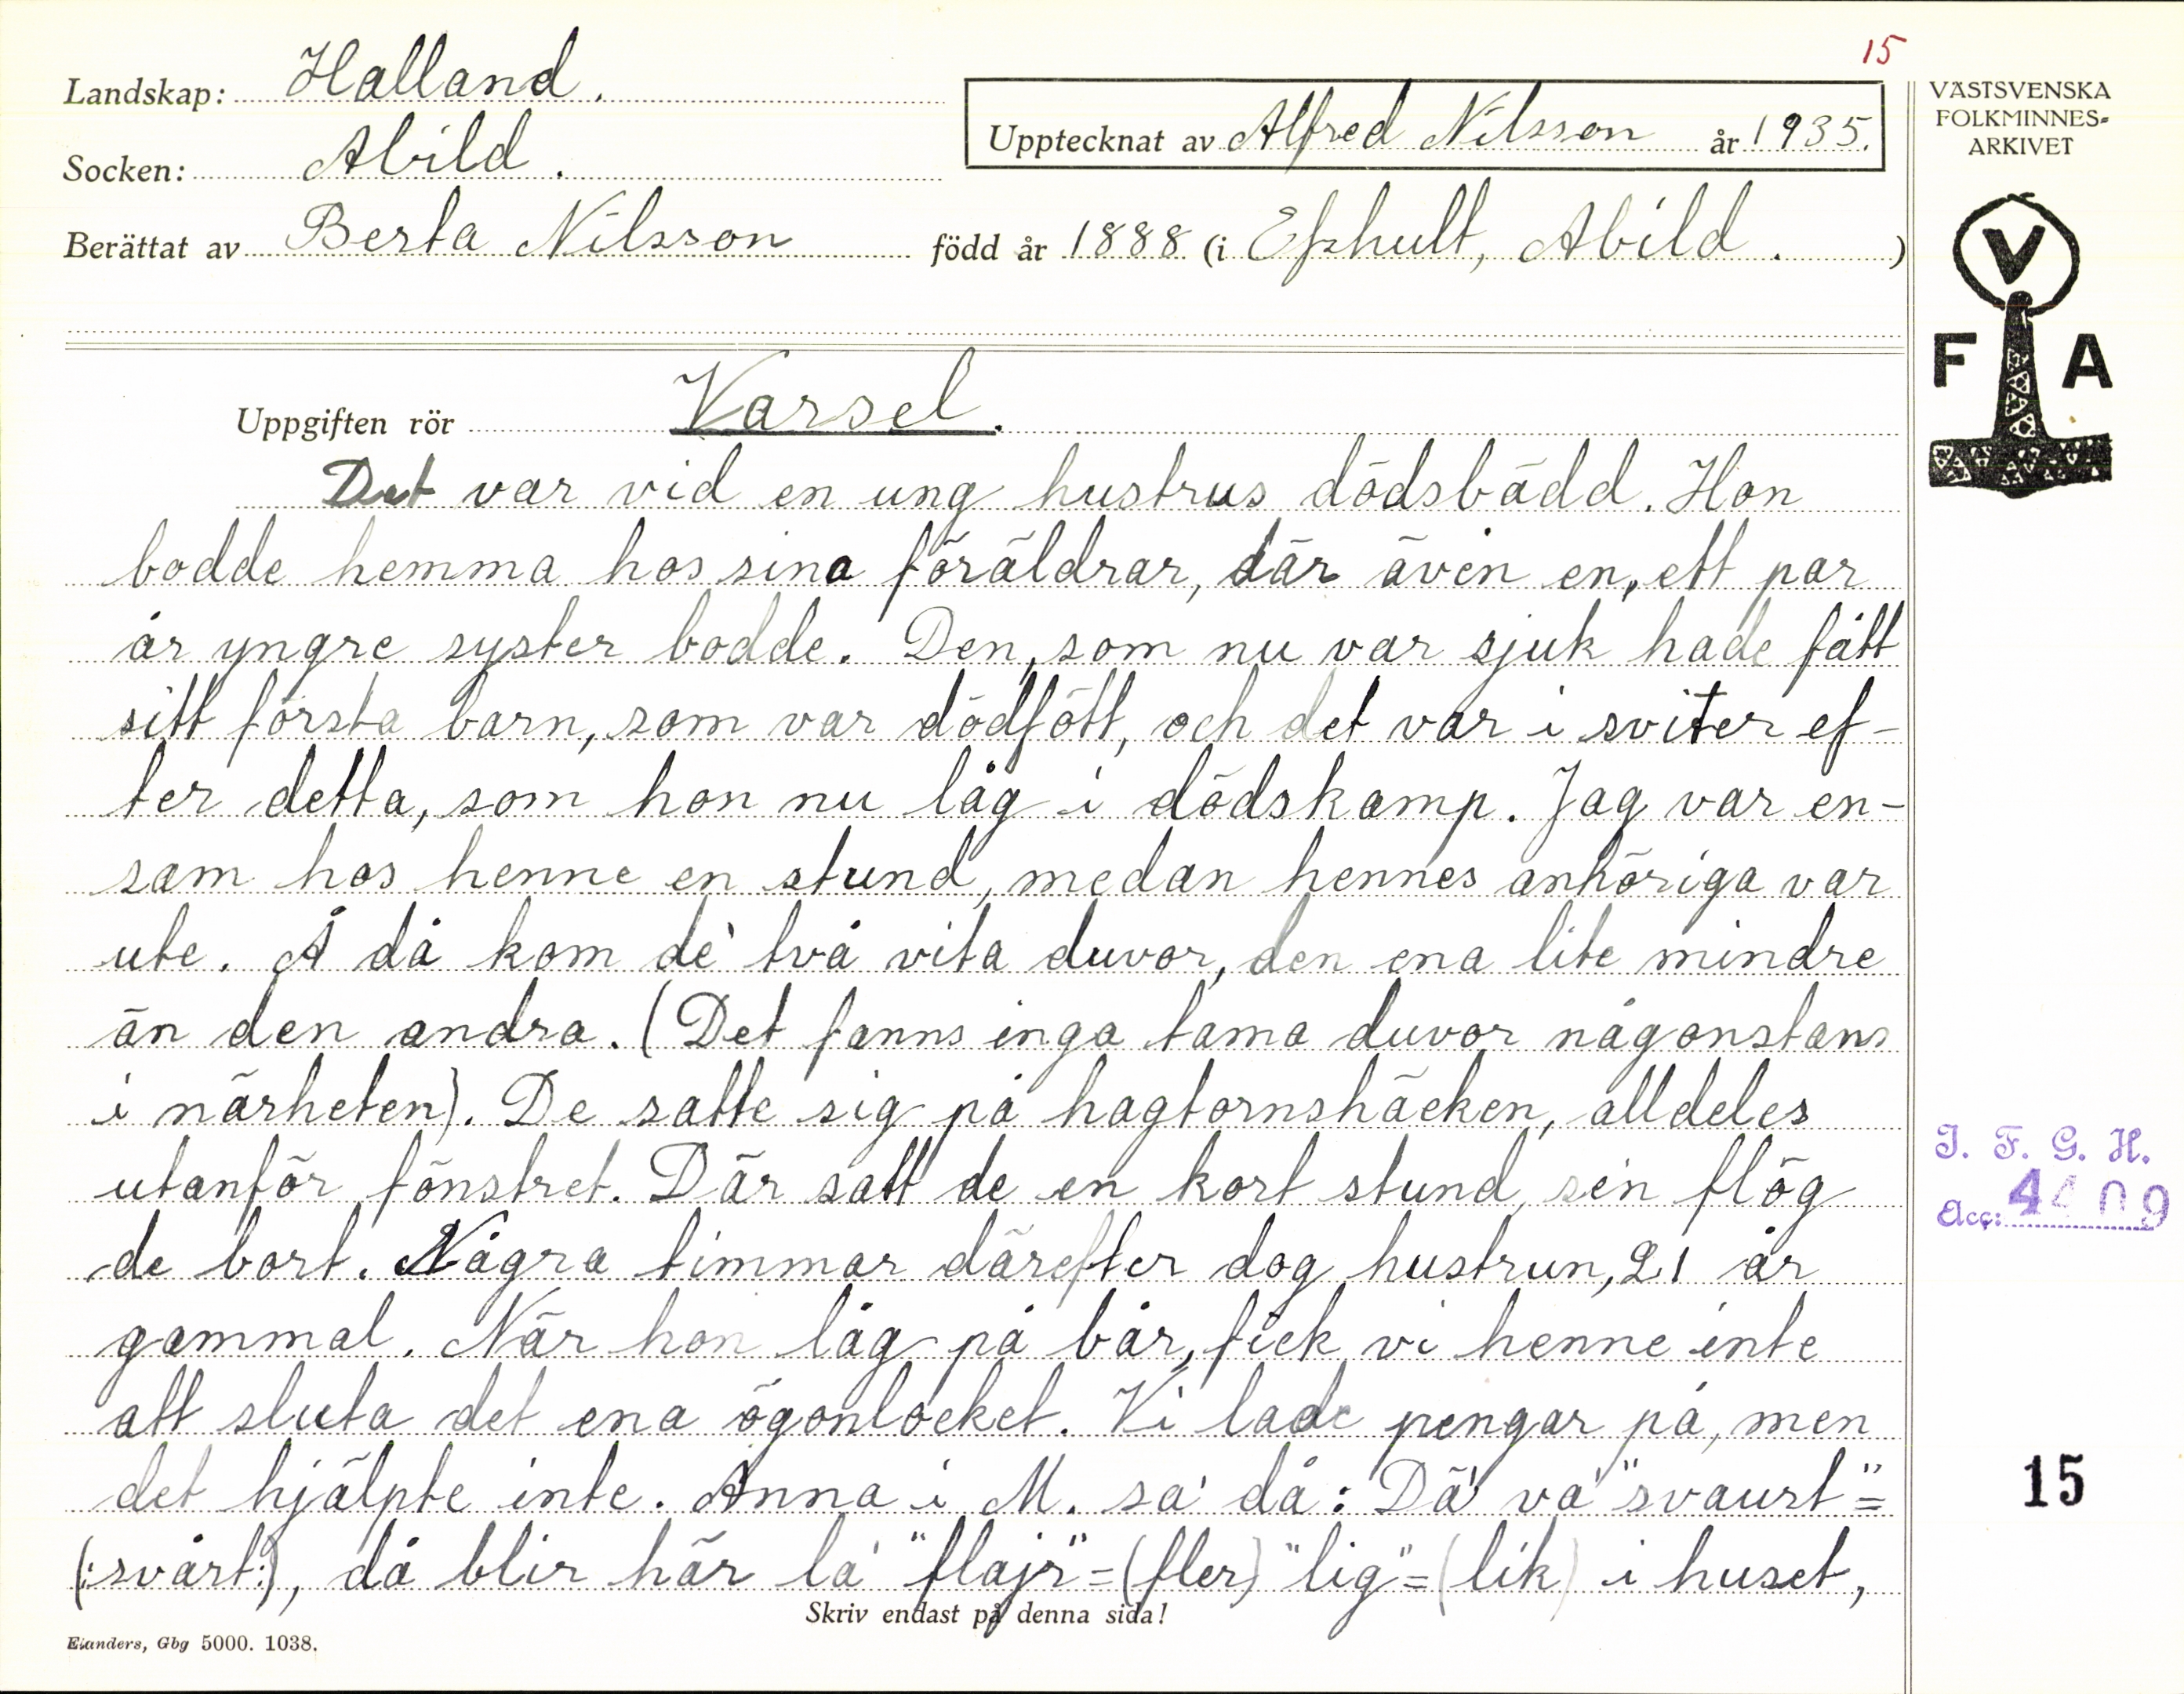 15
Landskap: Halland.
Upptecknat av Alfred Nilsson år 1935.
VÄSTSVENSKA
FOLKMINNES-
ARKIVET
Socken: Abild.
Berättat av Berta Nilsson född år 1888 (i Efshult, Abild.)
V
F A
Uppgiften rör Varsel.
Det var vid en ung hustrus dödsbädd. Hon
bodde hemma hos sina föräldrar, där även en, ett par
år yngre syster bodde. Den, som nu var sjuk hade fått
sitt första barn, som var dödfött, och det var i sviter ef-
ter detta, som hon nu låg i dödskamp. Jag var en-
sam hos henne en stund, medan hennes anhöriga var
ute. Å då kom de' två vita duvor, den ena lite mindre
än den andra. (Det fanns inga tama duvor någonstans
i närheten). De satte sig på hagtornshäcken, alldeles
utanför fönstret. Där satt de en kort stund, sen flög
de bort. Några timmar därefter dog hustrun, 21 år
gammal. När hon låg på bår, fick vi henne inte
att sluta det ena ögonlocket. Vi lade pengar på, men
det hjälpte inte. Anna i M. sa' då: Dä' va' "svaurt"=
(:svårt:), då blir här la' "flajr"=(fler) "lig"=(lik) i huset,
Skriv endast på denna sida!
Elanders, Gbg 5000. 1038.
I. F. G. H.
Acc: 4409
15